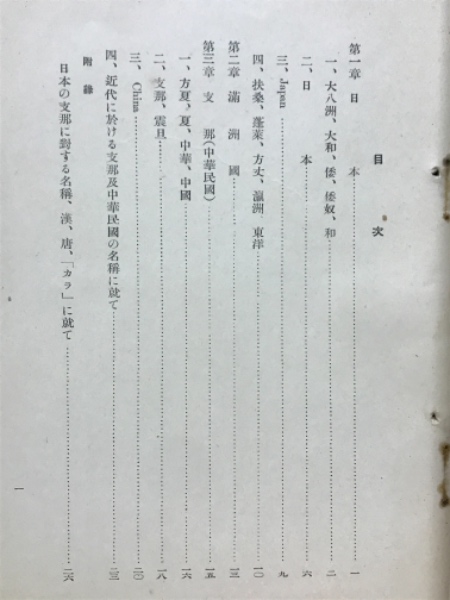 目次
第一章 日本……一
一、大八洲、大和、倭、倭奴、和……二
二、日本……六
三、Japan……九
四、扶桑、蓬萊、方丈、瀛洲、東洋……一〇
第二章 滿洲國……一三
第三章 支那(中華民國)……一五
一、方夏、夏、中華、中國……一六
二、支那、震旦……一八
三、China……二〇
四、近代に於ける支那及中華民國の名稱に就て……二三
附錄
日本の支那に對する名稱、漢、唐、「カラ」に就て……二六
一